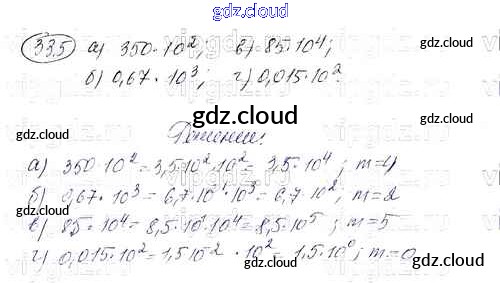 gdz.cloud
33.5 а) 350·10²; в) 85·10⁴;
gdz.cloud gdz.cloud
б) 0,67·10³; г) 0,015·10²
gdz.cloud
Решение:
gdz.cloud
а) 350·10² = 3,5·10²·10² = 3,5·10⁴; m=4
б) 0,67·10³ = 6,7·10⁻¹·10³ = 6,7·10², m=2
в) 85·10⁴ = 8,5·10¹·10⁴ = 8,5·10⁵; m=5
г) 0,015·10² = 1,5·10⁻²·10² = 1,5·10⁰; m=0
gdz.cloud gdz.cloud